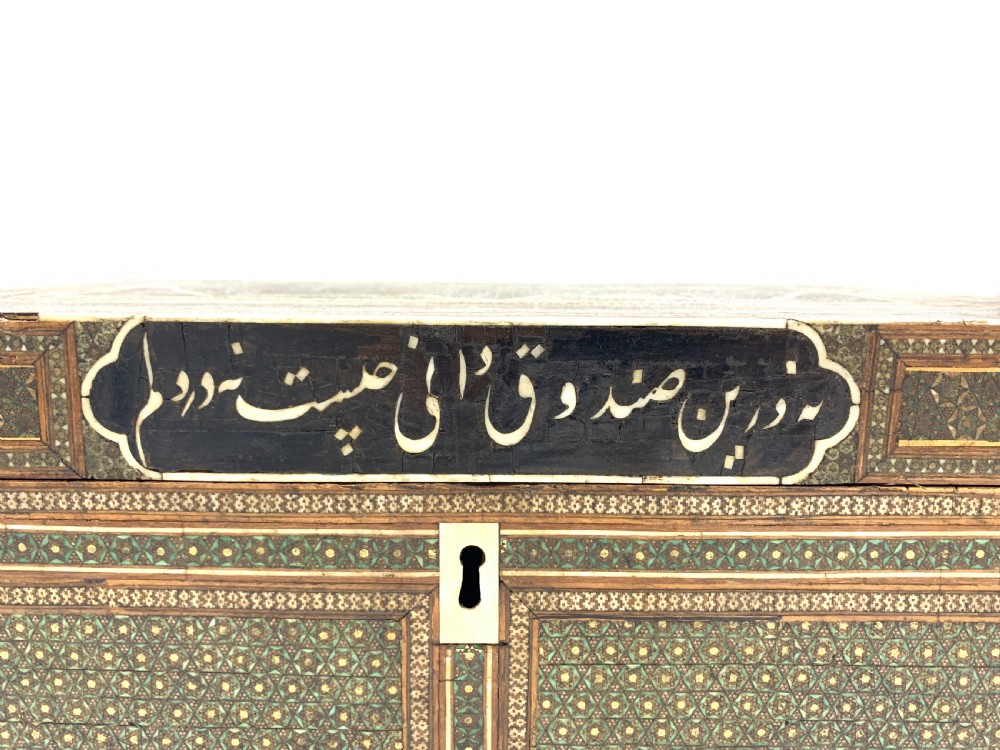 نه درین صندوق دانی چیست نه در دلم